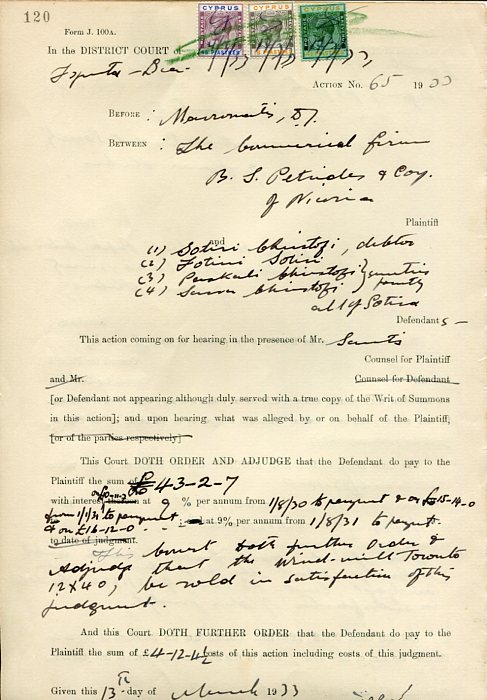 120
Form J. 100A.
CYPRUS CYPRUS CYPRUS
In the DISTRICT COURT of
ACTION No. 65 1933
BEFORE : Mavromatis, DJ.
BETWEEN : The Commercial firm
B. S. Petrides & Coy.
of Nicosia
Plaintiff
and
(1) Sotiri Christofi, debtor
(2) Fotini Sotiri
(3) Paraskevi Christofi
(4) Savva Christofi
all of Sotira
Defendants
This action coming on for hearing in the presence of Mr.
Counsel for Plaintiff
and Mr. Counsel for Defendant
[or Defendant not appearing although duly served with a true copy of the Writ of Summons
in this action]; and upon hearing what was alleged by or on behalf of the Plaintiff,
[or of the parties respectively]
This Court DOTH ORDER AND ADJUDGE that the Defendant do pay to the
Plaintiff the sum of £43-2-7
with interest thereon at 9 % per annum from 1/8/30 to payment & on £15-14-0
from 1/1/31 to payment at 9% per annum from 1/8/31 to paymt.
& on £16-12-0
to date of judgment.
This Court doth further Order &
Adjudge that the Wind-mill Toronto
12X40, be sold in satisfaction of this
judgment.
And this Court DOTH FURTHER ORDER that the Defendant do pay to the
Plaintiff the sum of £4-12-4½ costs of this action including costs of this judgment.
Given this 13th day of March 1933